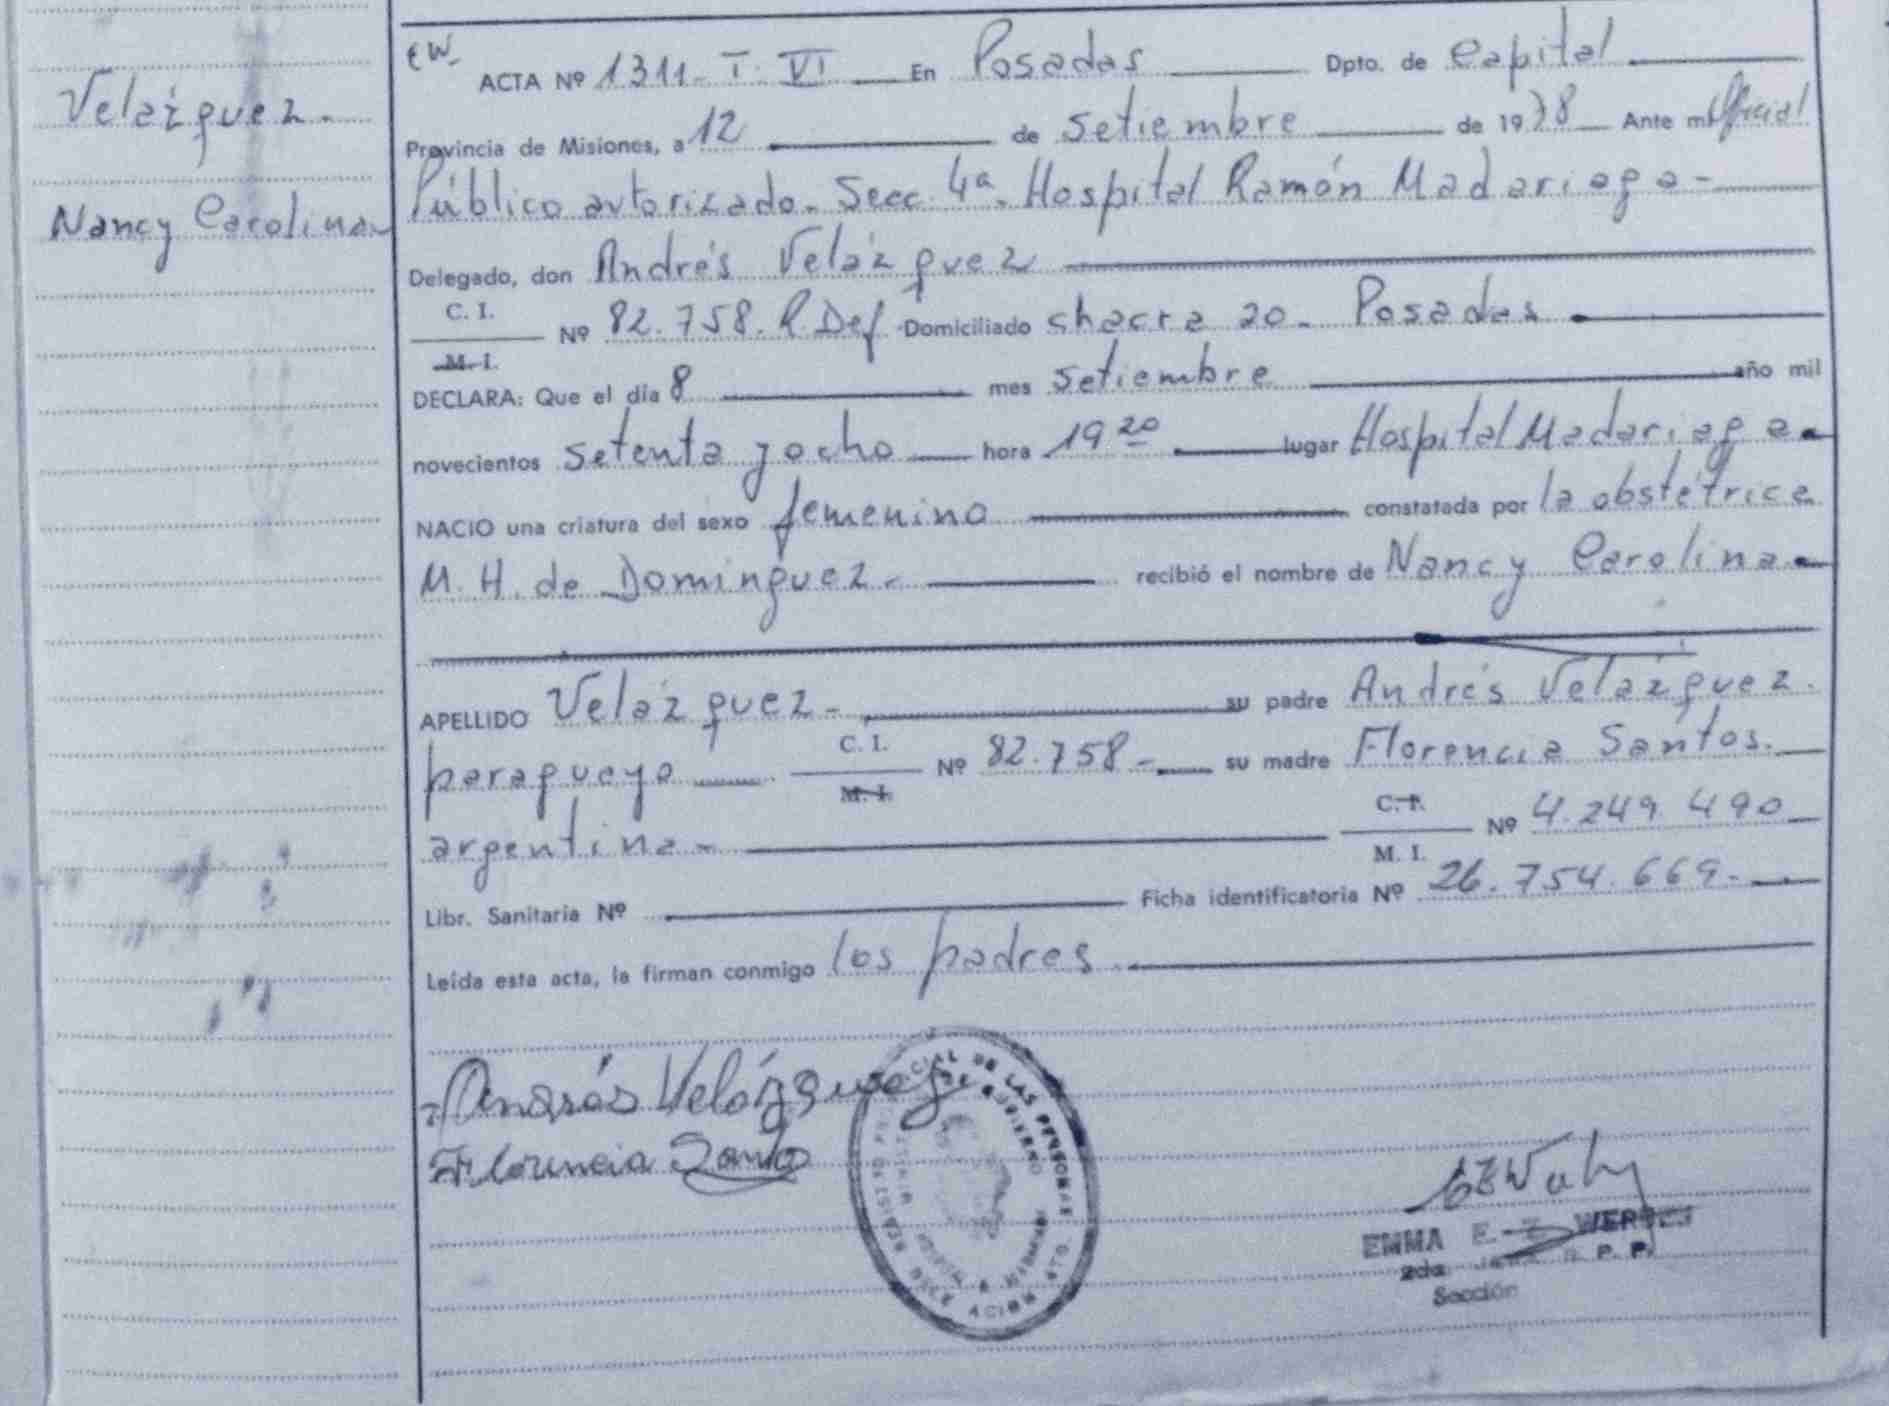 Velázquez.
Nancy Carolina
EW.
ACTA Nº 1311. T. VI En Posadas Dpto. de Capital
Provincia de Misiones, a 12 de setiembre de 1978 Ante mí Oficial
Público autorizado. Secc. 4ª. Hospital Ramón Madariaga -
Delegado, don Andrés Velázquez
C. I.
M. I.
Nº 82.758. R. Def. Domiciliado chacra 20. Posadas
DECLARA: Que el día 8 mes setiembre año mil
novecientos setenta y ocho hora 19 20 lugar Hospital Madariaga
NACIO una criatura del sexo femenino constatada por la obstétrica
M. H. de Dominguez. recibió el nombre de Nancy Carolina
APELLIDO Velázquez - su padre Andrés Velázquez.
paraguayo C. I. M. I. Nº 82.758 - su madre Florencia Santos.
argentina - C. I. M. I. Nº 4.249.490
Libr. Sanitaria Nº Ficha identificatoria Nº 26.754.669.
Leída esta acta, la firman conmigo los padres
Andrés Velázquez
Florencia Santo
DE LAS PERSONAS
EMMA E. Z.
2da.
Sección